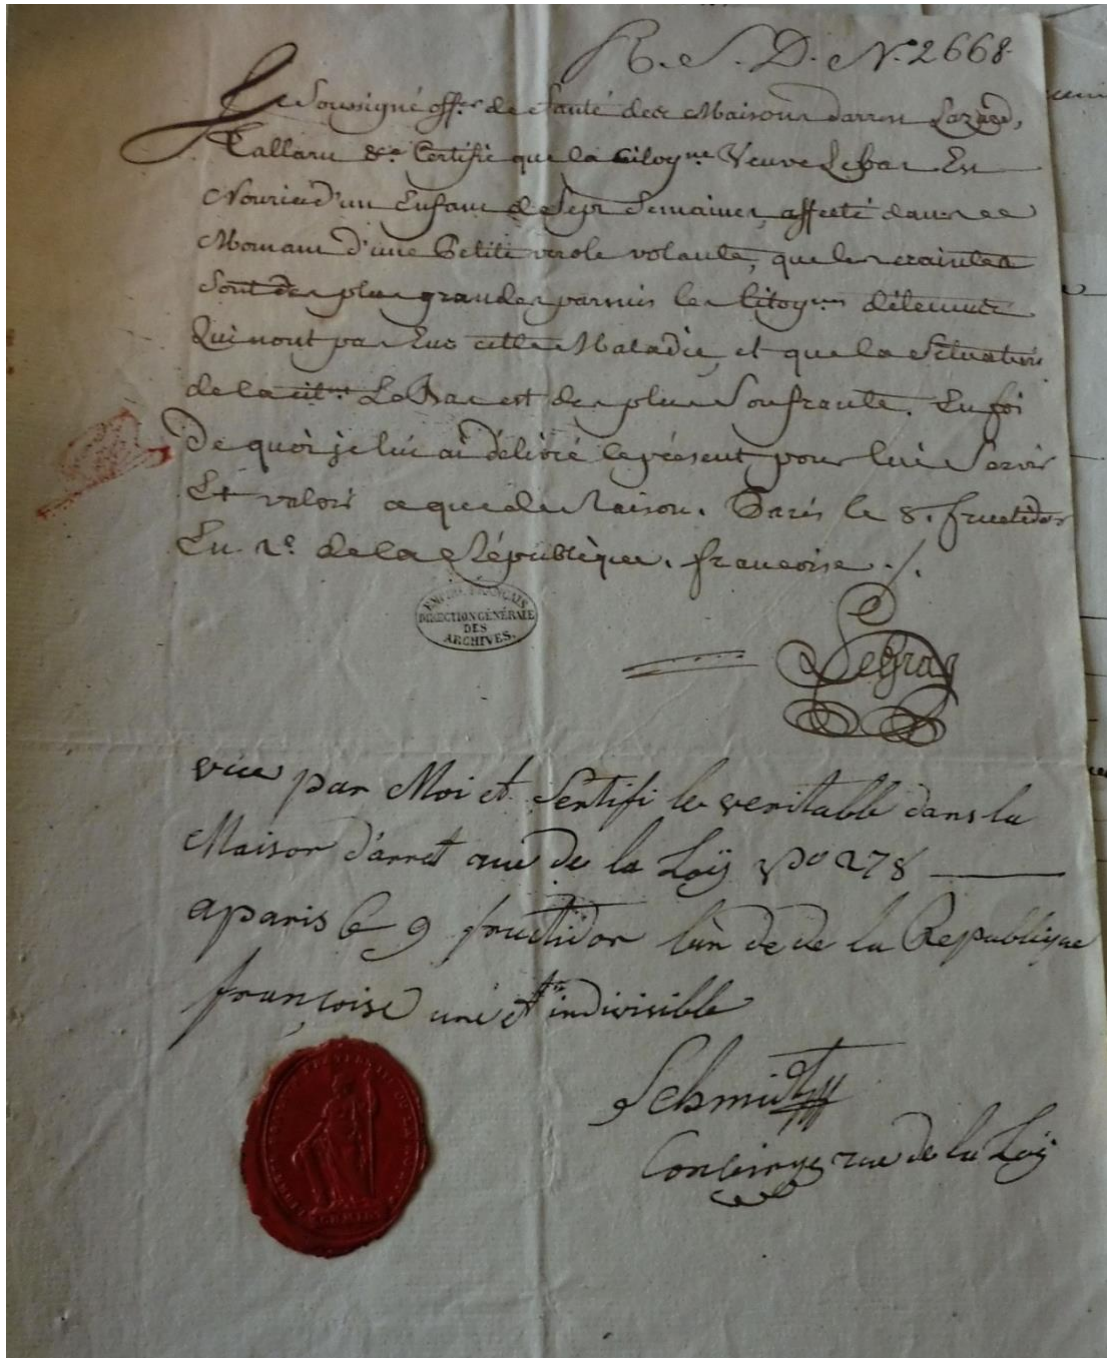 R. S. D. N.° 2668
Je Soussigné off.er de Santé des Maisons darret Lazard,
Tallaru &.a Certifie que la Citoy.ne Veuve Lebas En
Nourice d'un Enfant de Sept Semaines, affecté dans ce
Momant d'une Petite verole volante, que les craintes
Sont des plus grandes parmis les Citoy.nes détenues
Qui nont pas Eus cette Maladie, et que la Situation
de la cit.ne Le Bas est des plus Soufrante. En foi
De quoi je lui ai délivré le présent pour lui Servir
Et valoir ce que de Raison. Paris le 8. fructidor
En 2.e de la République. francoise ./.
EMPIRE FRANÇAIS
DIRECTION GÉNÉRALE
DES
ARCHIVES.
Legras
vue par Moi et Sertifi le veritable dans la
Maison d'arret rue de la Loÿ No 278
a paris le 9 fructidor l'an de de la Republique
françoise une et indivisible
Schmidt
Concirge rue de la Loÿ